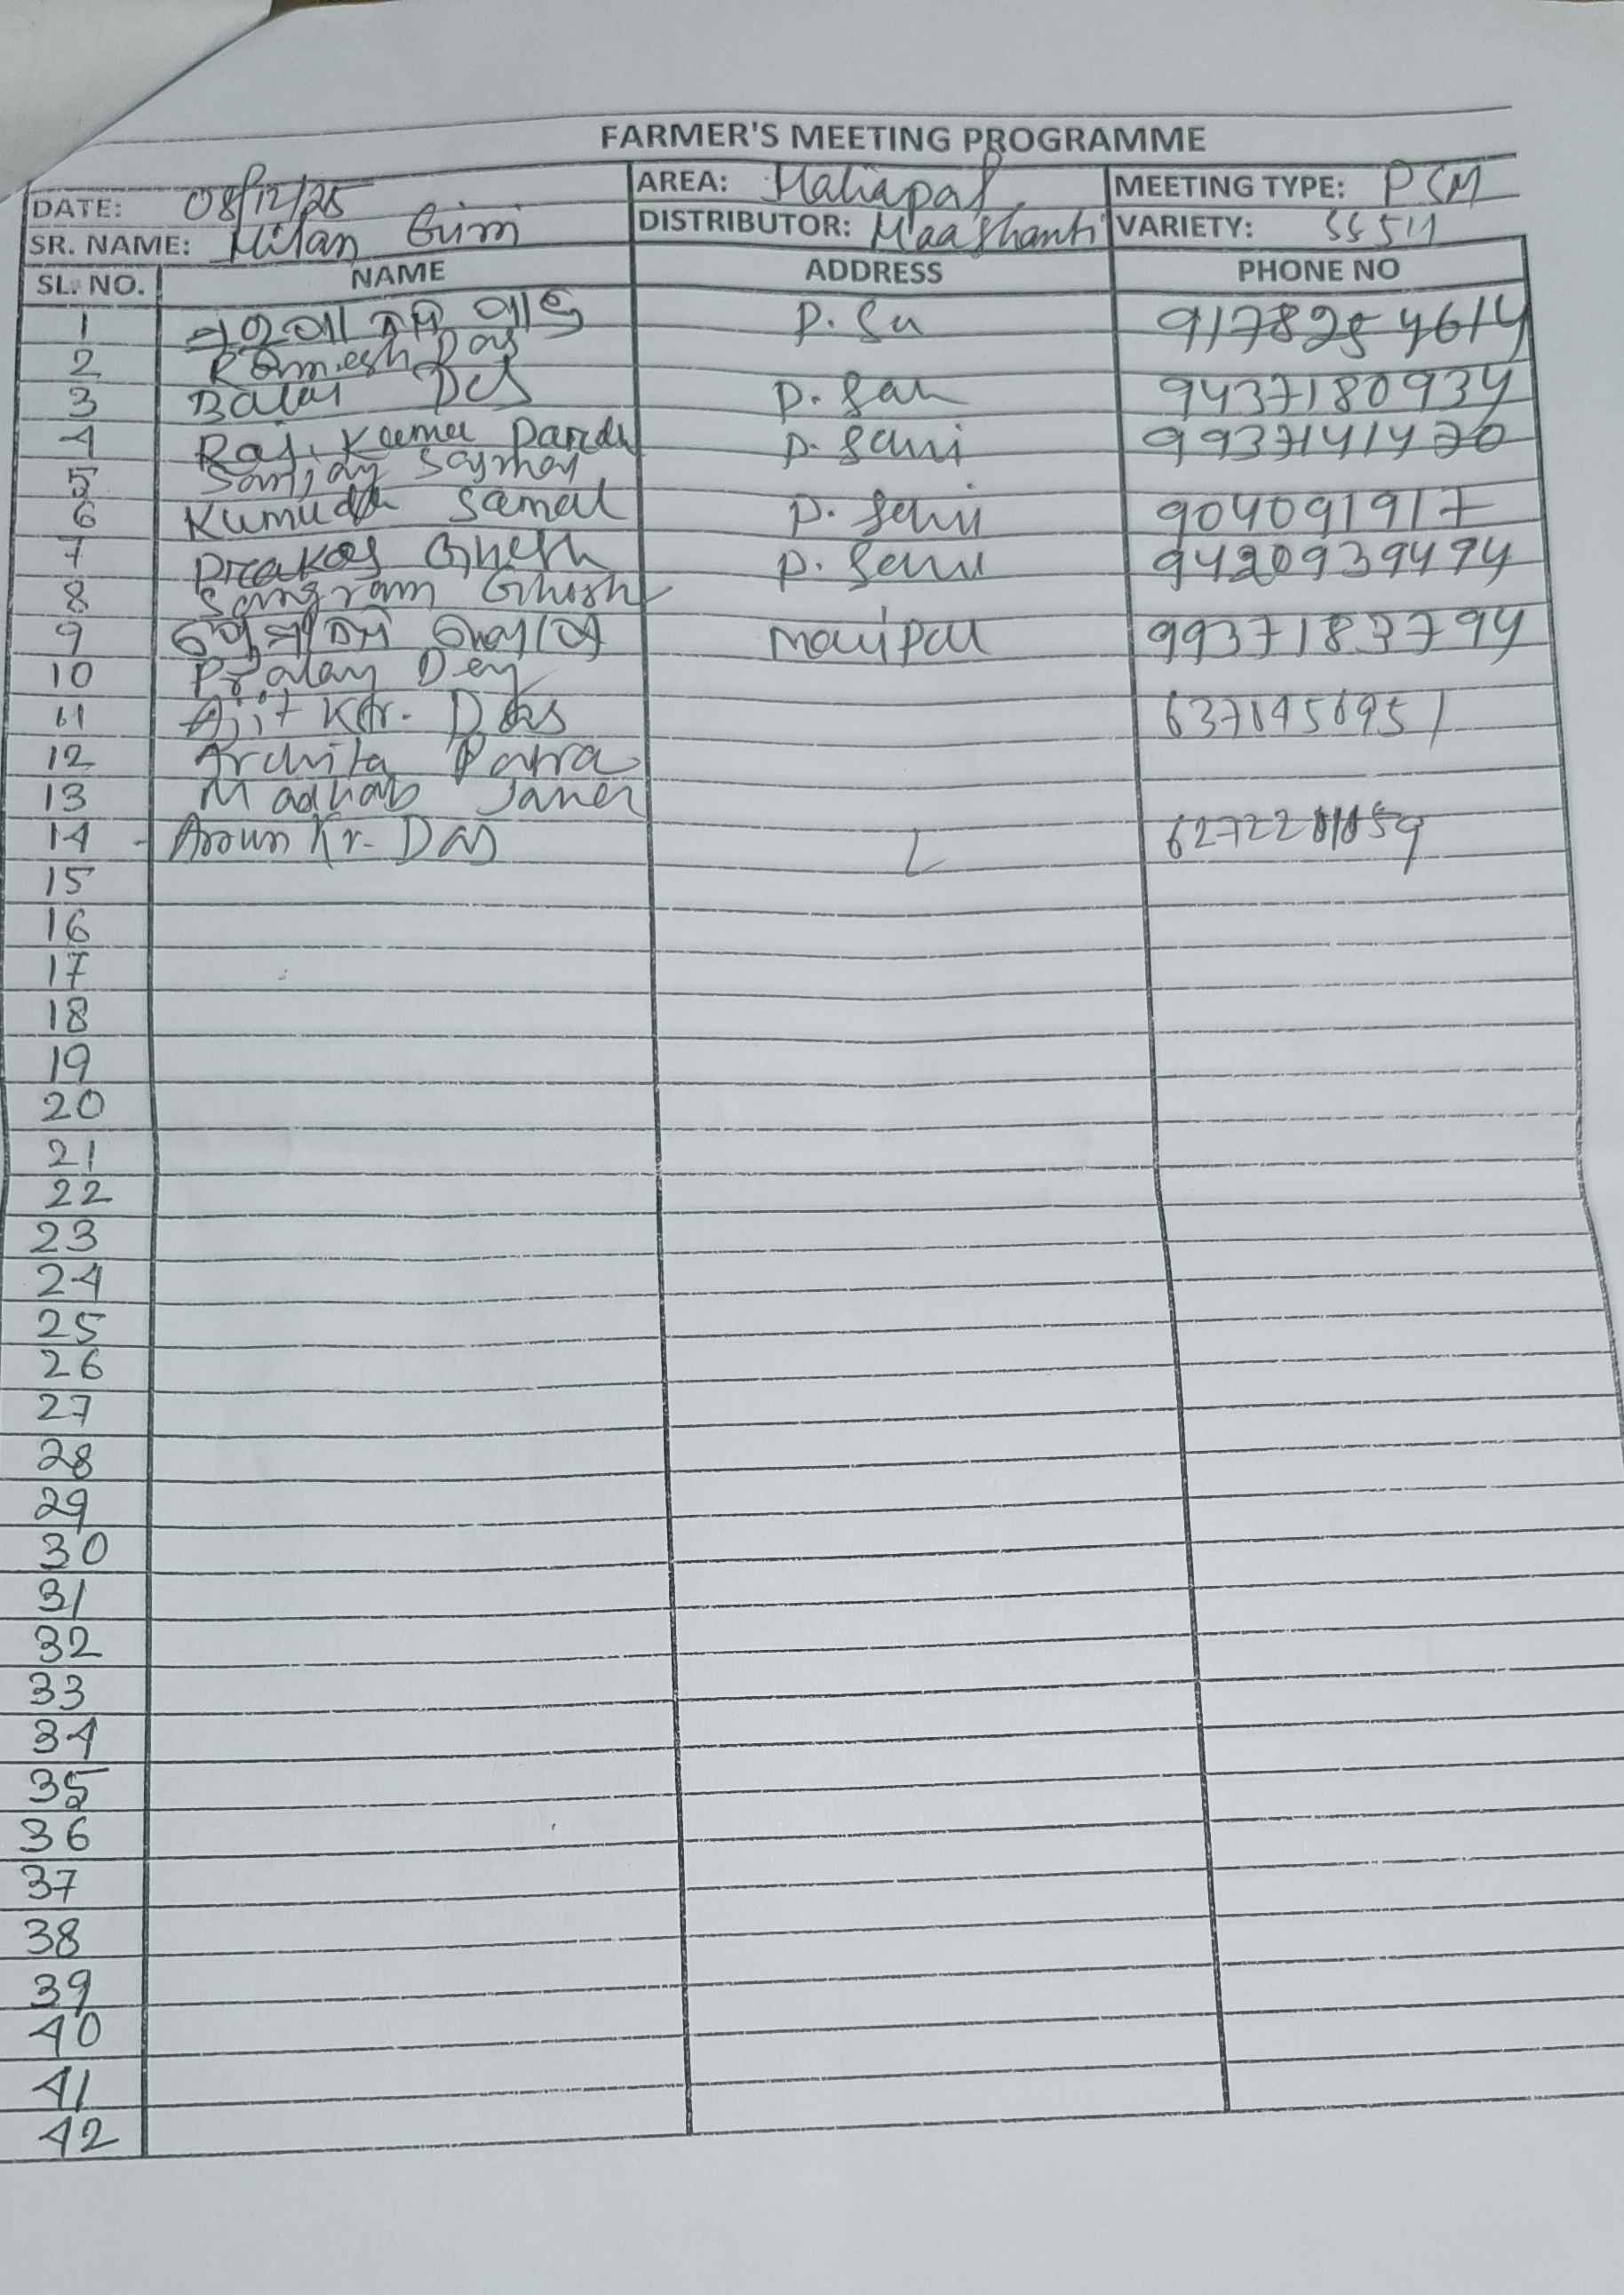 FARMER'S MEETING PROGRAMME
DATE: 08/12/25 AREA: Mahapal MEETING TYPE: PCM
SR. NAME: Milan Giri DISTRIBUTOR: Maa Shanti VARIETY: SS 511
SL. NO. NAME ADDRESS PHONE NO
1 P. Sa 9178254614
2 Ramesh Das
3 Balai Das P. San 9437180934
4 Raj. Kumar Panda P. Sani 9937141470
5 Sanjay
6 Samal P. Sani 904091917
7 Prakas Ghosh P. Sani 9420939494
8 Sangram Ghosh
9 Manipal 9937183794
10 Pralay Dey
11 Ajit Kr. Das
12 Archita Patra
13 Madhab Janer
14 Arun Kr. Das
15
16
17
18
19
20
21
22
23
24
25
26
27
28
29
30
31
32
33
34
35
36
37
38
39
40
41
42